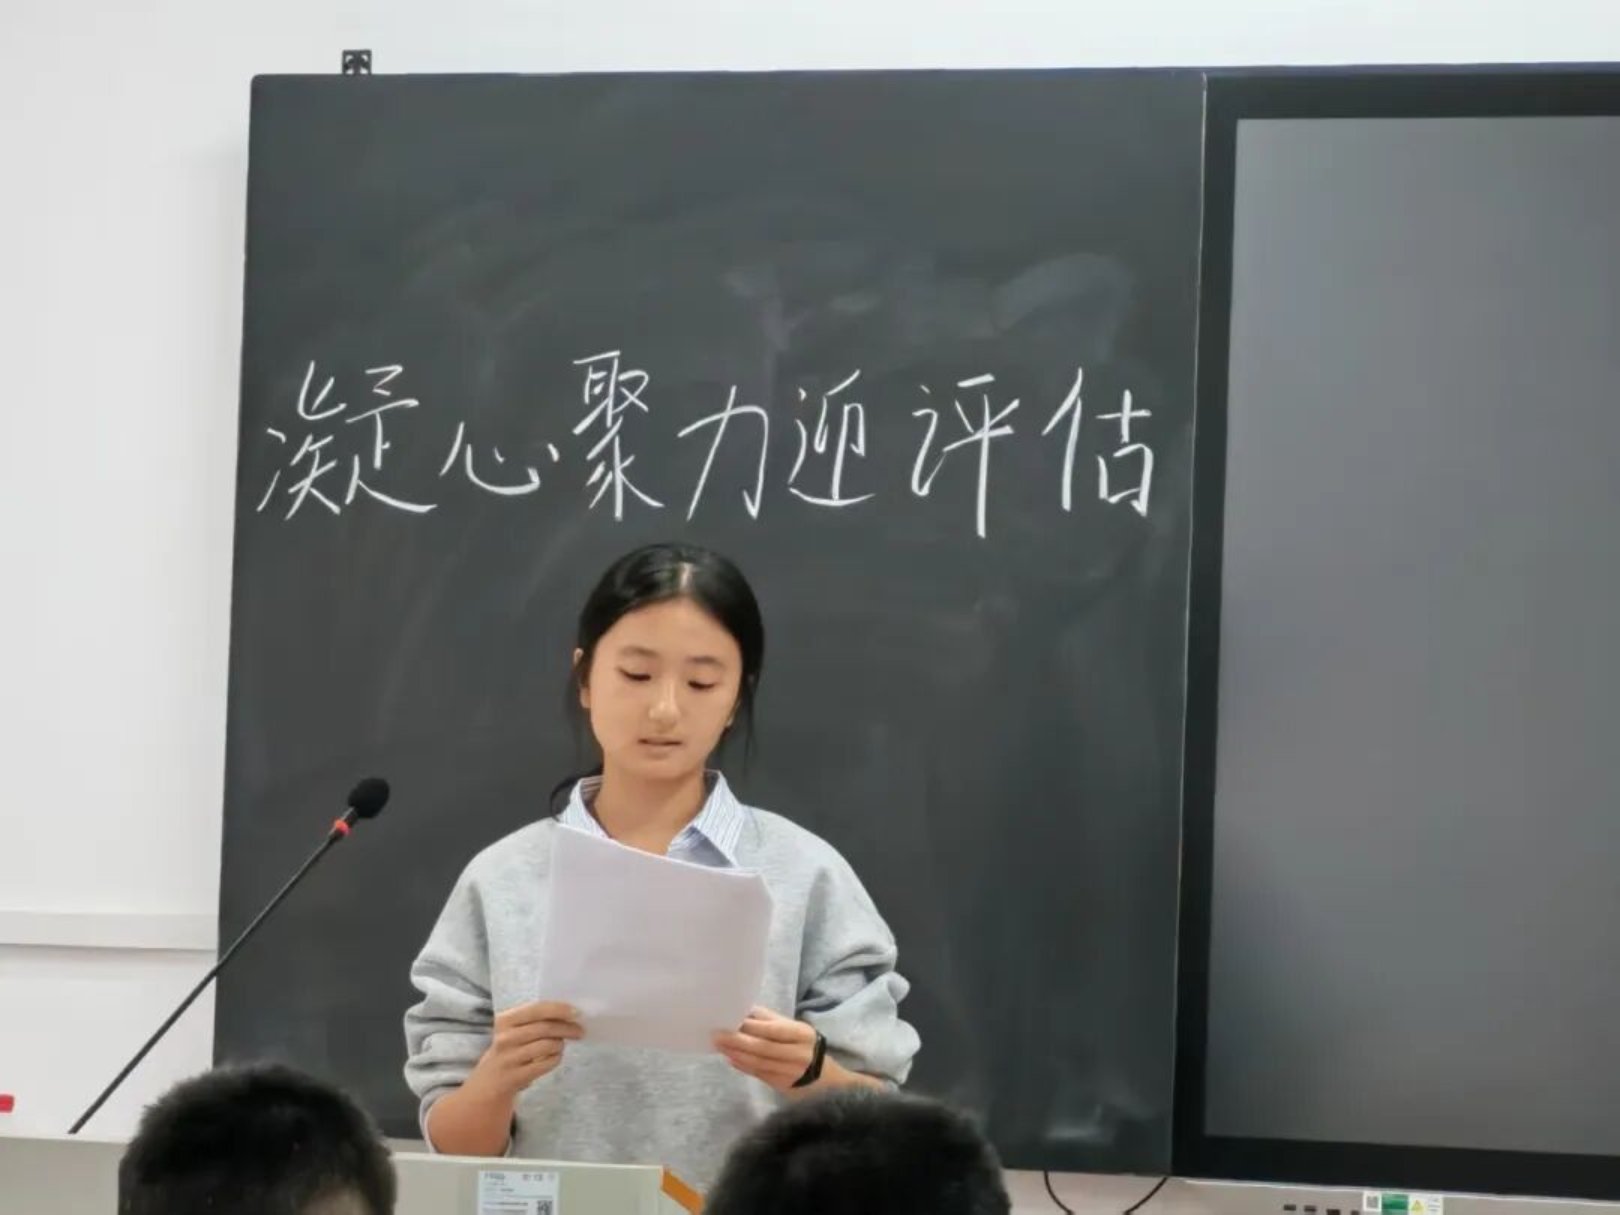 凝心聚力迎评估